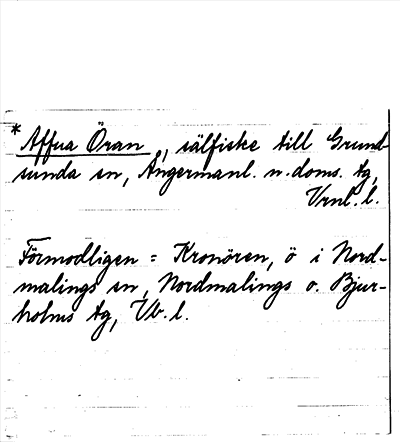 * Affua Öran, sälfiske till Grund-
sunda sn, Ångermanl. n. doms. tg,
Vrnl. l.
Förmodligen = Kronören, ö i Nord-
malings sn, Nordmalings o. Bjur-
holms tg, Vb. l.